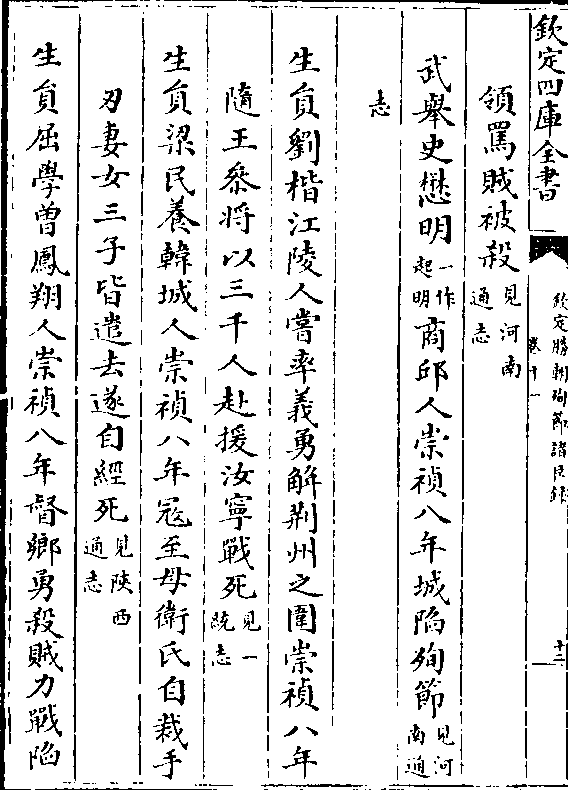 欽定四庫全書
欽定勝朝殉節諸臣錄
卷十一
十二
領罵賊被殺見河南通志
武舉史懋明一作起明商邱人崇禎八年城陷殉節見河南通
志
生員劉楷江陵人嘗率義勇解荆州之圍崇禎八年
隨王叅将以三千人赴援汝寧戰死見一統志
生員梁民養韓城人崇禎八年冦至母衛氏自裁手
刃妻女三子皆遣去遂自經死見陜西通志
生員屈學曽鳳翔人崇禎八年督鄉勇殺賊力戰陷